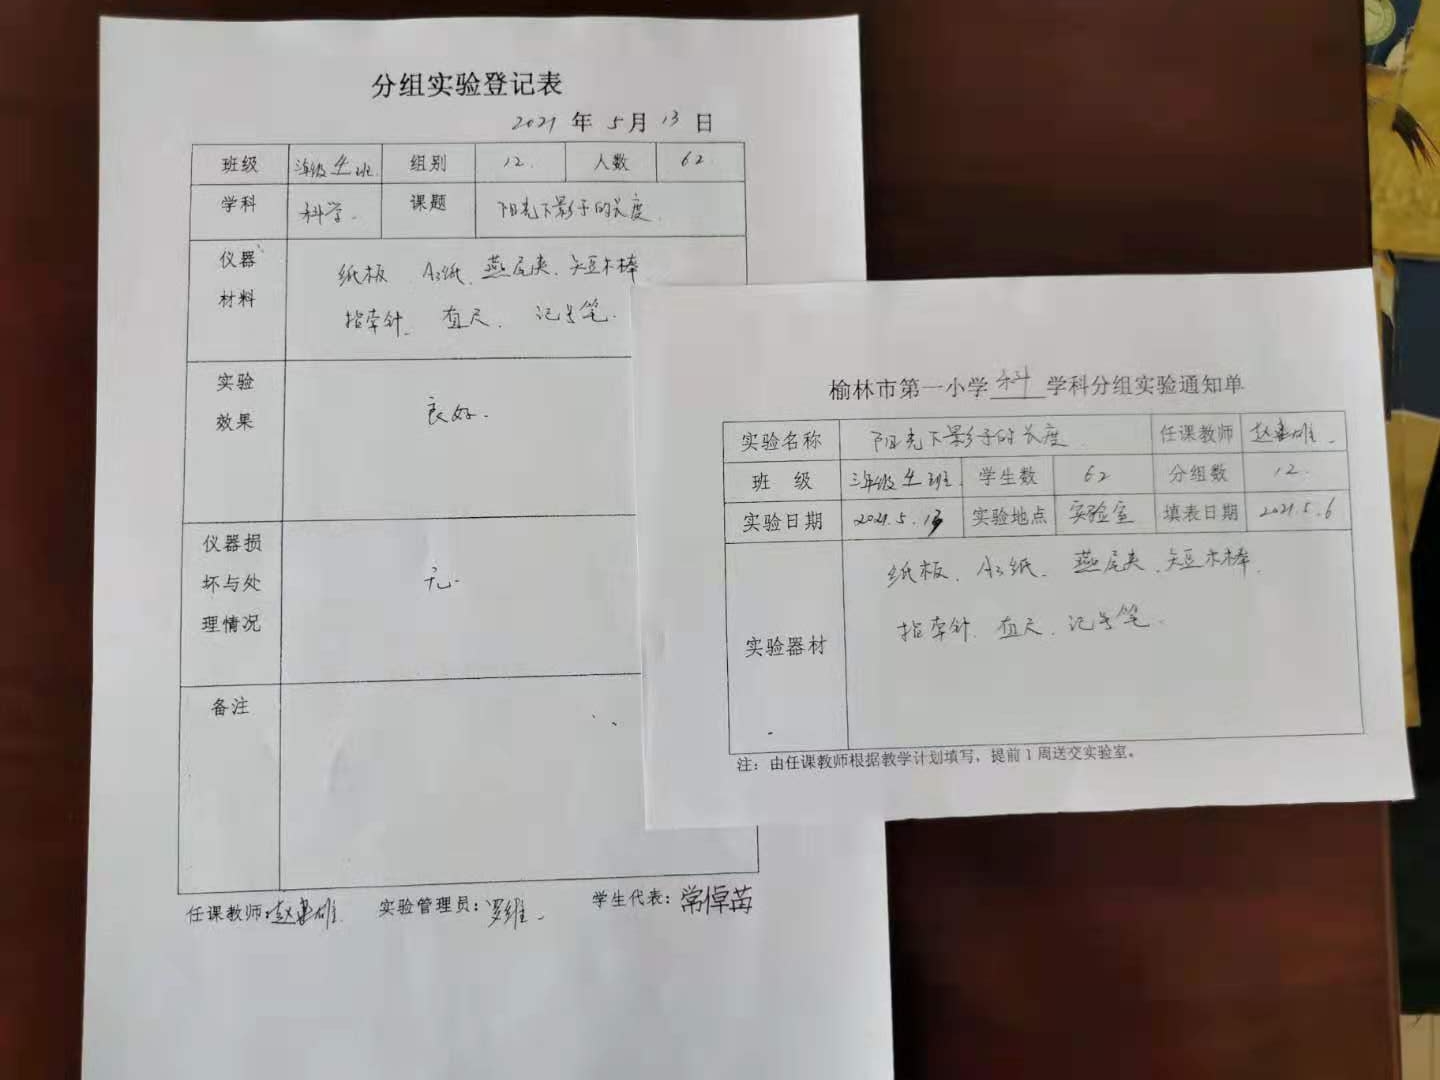 分组实验登记表
2021 年 5 月 13 日
班级 三年级 4 班 组别 12. 人数 62
学科 科学. 课题 阳光下影子的长度.
仪器材料 纸板、A3纸、燕尾夹、短木棒
指南针、直尺、记号笔.
实验效果 良好.
仪器损坏与处理情况 无.
备注
任课教师: 赵 雄 实验管理员: 罗维 学生代表: 常倬苒
榆林市第一小学 科 学科分组实验通知单
实验名称 阳光下影子的长度 任课教师 赵 雄
班 级 三年级 4 班 学生数 62 分组数 12.
实验日期 2021.5.13 实验地点 实验室 填表日期 2021.5.6
实验器材 纸板、A3纸、燕尾夹、短木棒
指南针、直尺、记号笔.
注：由任课教师根据教学计划填写，提前 1 周送交实验室。